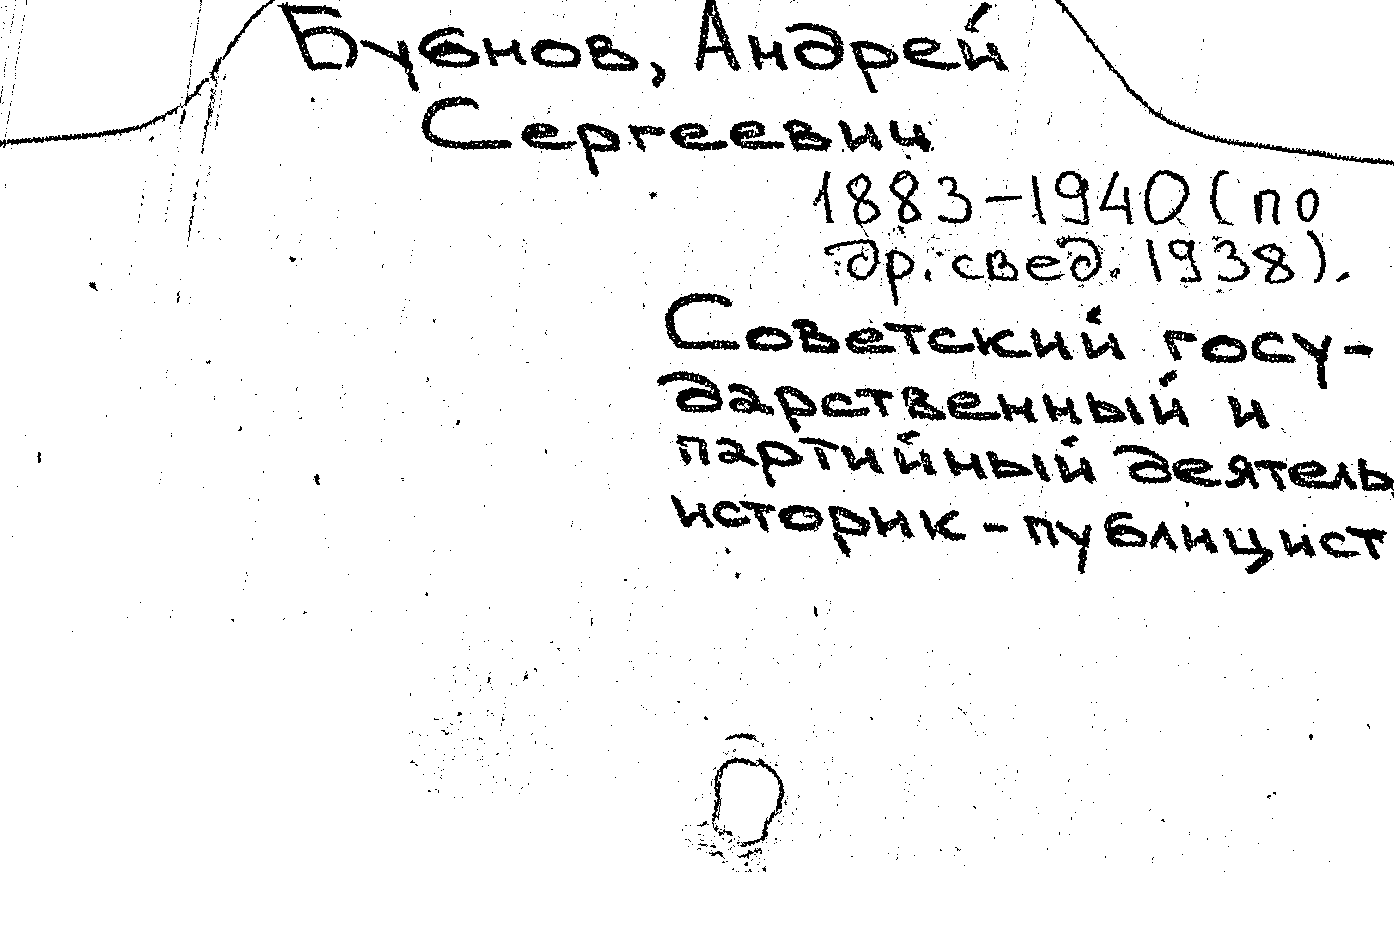 Бубнов, Андрей
Сергеевич
1883-1940 (по
др. свед. 1938).
Советский госу-
дарственный и
партийный деятель
историк-публицист